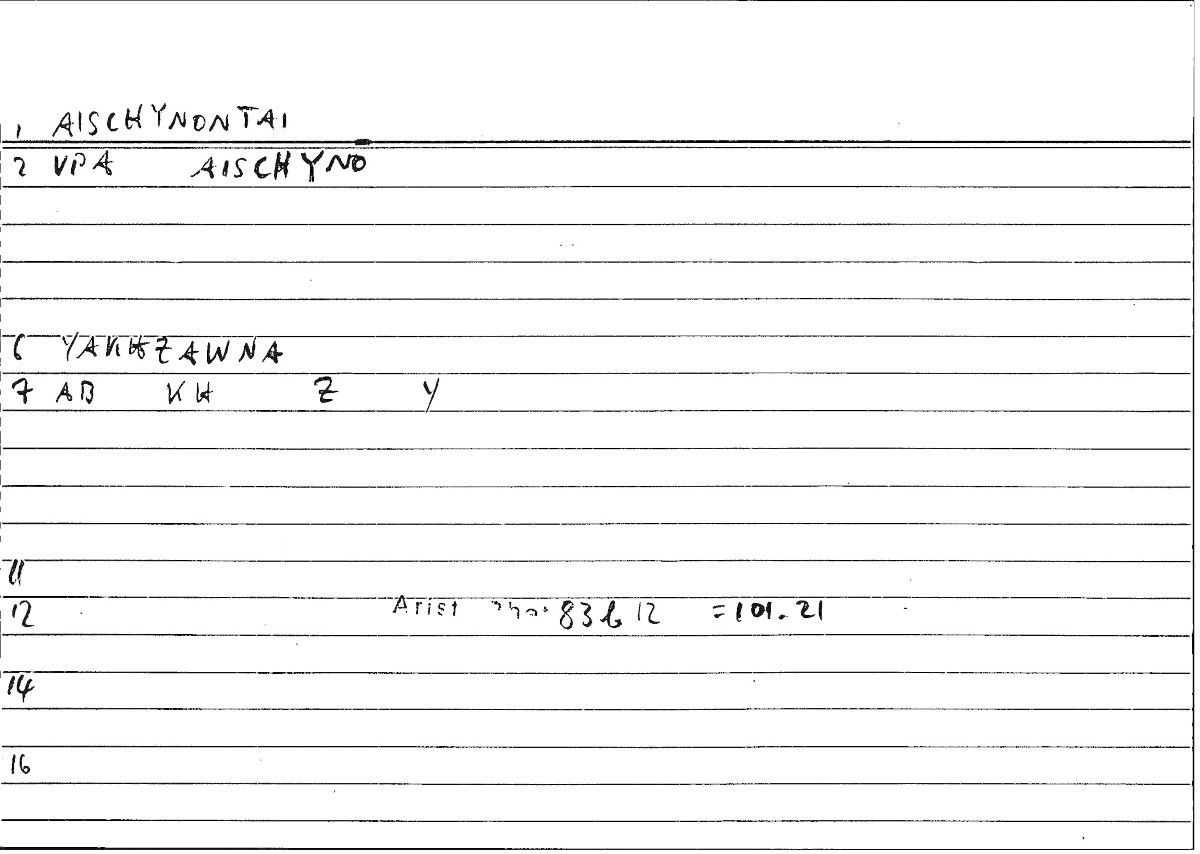 1 AISCHYNONTAI
2 VPA AISCHYNO
6 YAKHZAWNA
7 AB KH Z Y
11
12 Arist 83b12 =101.21
14
16